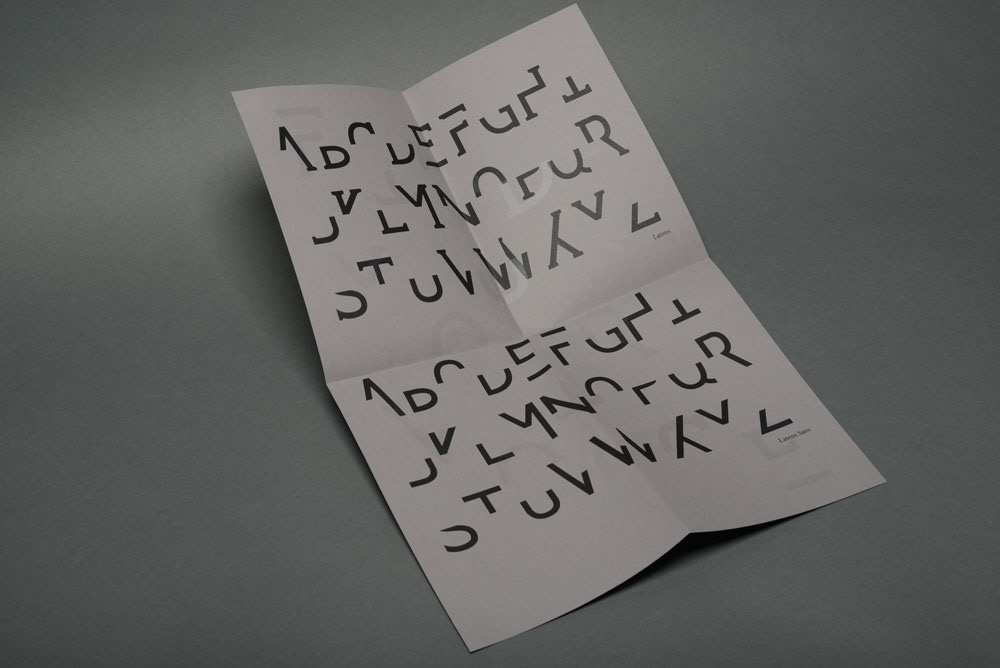 ABCDEFGHI
JKLMNOPQR
STUVWXYZ
Latens
ABCDEFGHI
JKLMNOPQR
STUVWXYZ
Latens Sans